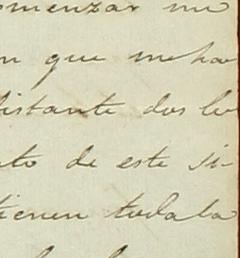 omenzar me
n que me ha
distante dos le
to de este si-
tienen toda la